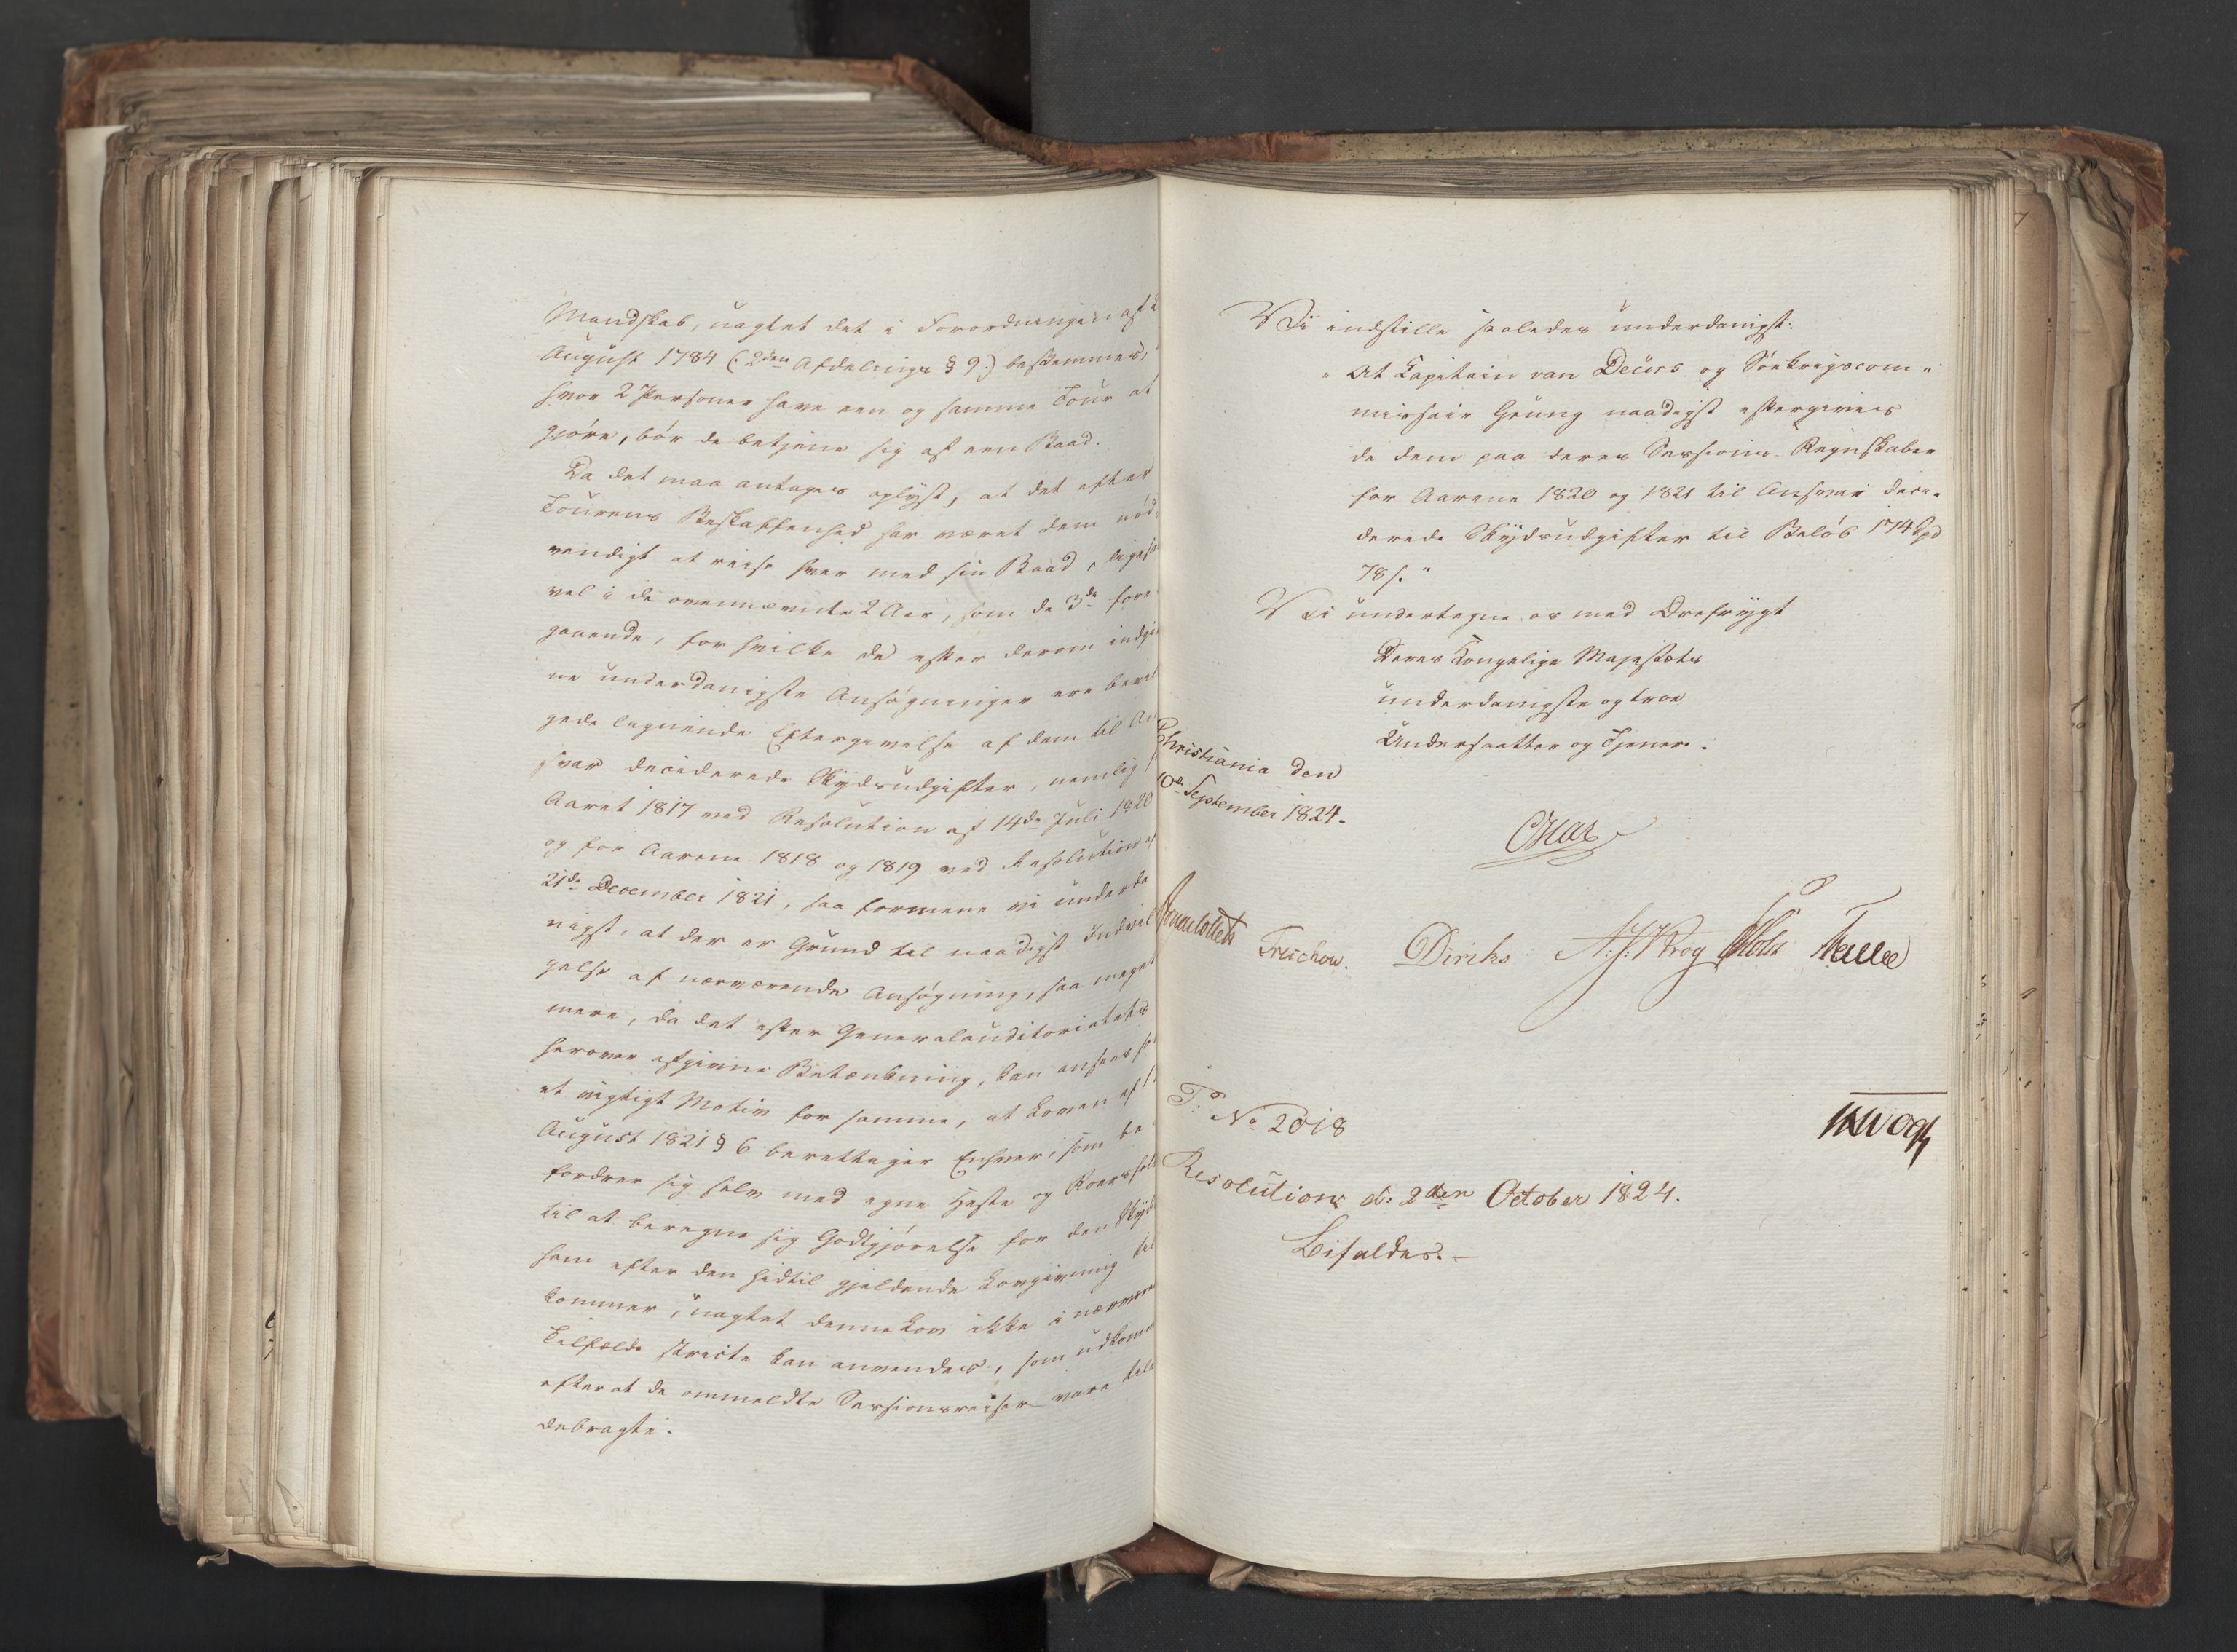 Mandskab, uagtet det i Forordningen af
August 1784 (: 2den Afdelings § 9:) bestemmes,
hvor 2 Personer have een og samme Tour at
gjøre, bør de betjene sig af een Baad.
Da det maa antages oplyst, at det efter
Tourens Beskaffenhed har været dem nød
vendigt at reise hver med sin Baad, ligesaa
vel i de ovennævnte 2 Aar, som de 3de fore
gaaende, for hvilke de efter derom indgiv
ne underdanigste Ansøgninger ere bevil
gede lignende Eftergivelse af dem til An
svar deciderede Skydsudgifter, nemlig
Aaret 1817 ved Resolution af 14de Juli 1820
og for Aarene 1818 og 1819 ved Resolution af
21de December 1821, saa formene vi underda
nigst, at der er Grund til naadigst Indvil
gelse af nærværende Ansøgning, saa meget
mere, da det efter Generalauditoriatets
herover afgivne Betænkning, kan ansees som
et vigtigt Motiv for samme, at Loven af
August 1821 § 6 berettiger Enhver, som be
fordrer sig selv med egne Heste og Roersfolk
til at beregne sig Godtgjørelse for den Skyds
ham efter den hidtil gjeldende Lovgivning til
kommer, uagtet denne Lov ikke i nærværende
Tilfælde stricte kan anvendes, som udkommen
efterat de ommeldte Sessionsreiser vare tilen
debragte.
Vi indstille saaledes underdanigst:
"At Capitain van Deurs og Søekrigscom"
missair Grung naadigst eftergives
de dem paa deres Sessions-Regnskaber
for Aarene 1820 og 1821 til Ansvar deci"
derede Skydsudgifter til Beløb 174 Spd
78 s."
Vi undertegne os med Ærefrygt
Deres Kongelige Majestæts
underdanigste og troe
Undersaatter og Tjenere.
Christiania den
10de September 1824.
Treschow. Diriks Krog Holst Falbe
P: No 2018
Vogt
Resolution d: 2den October 1824.
Bifaldes.-